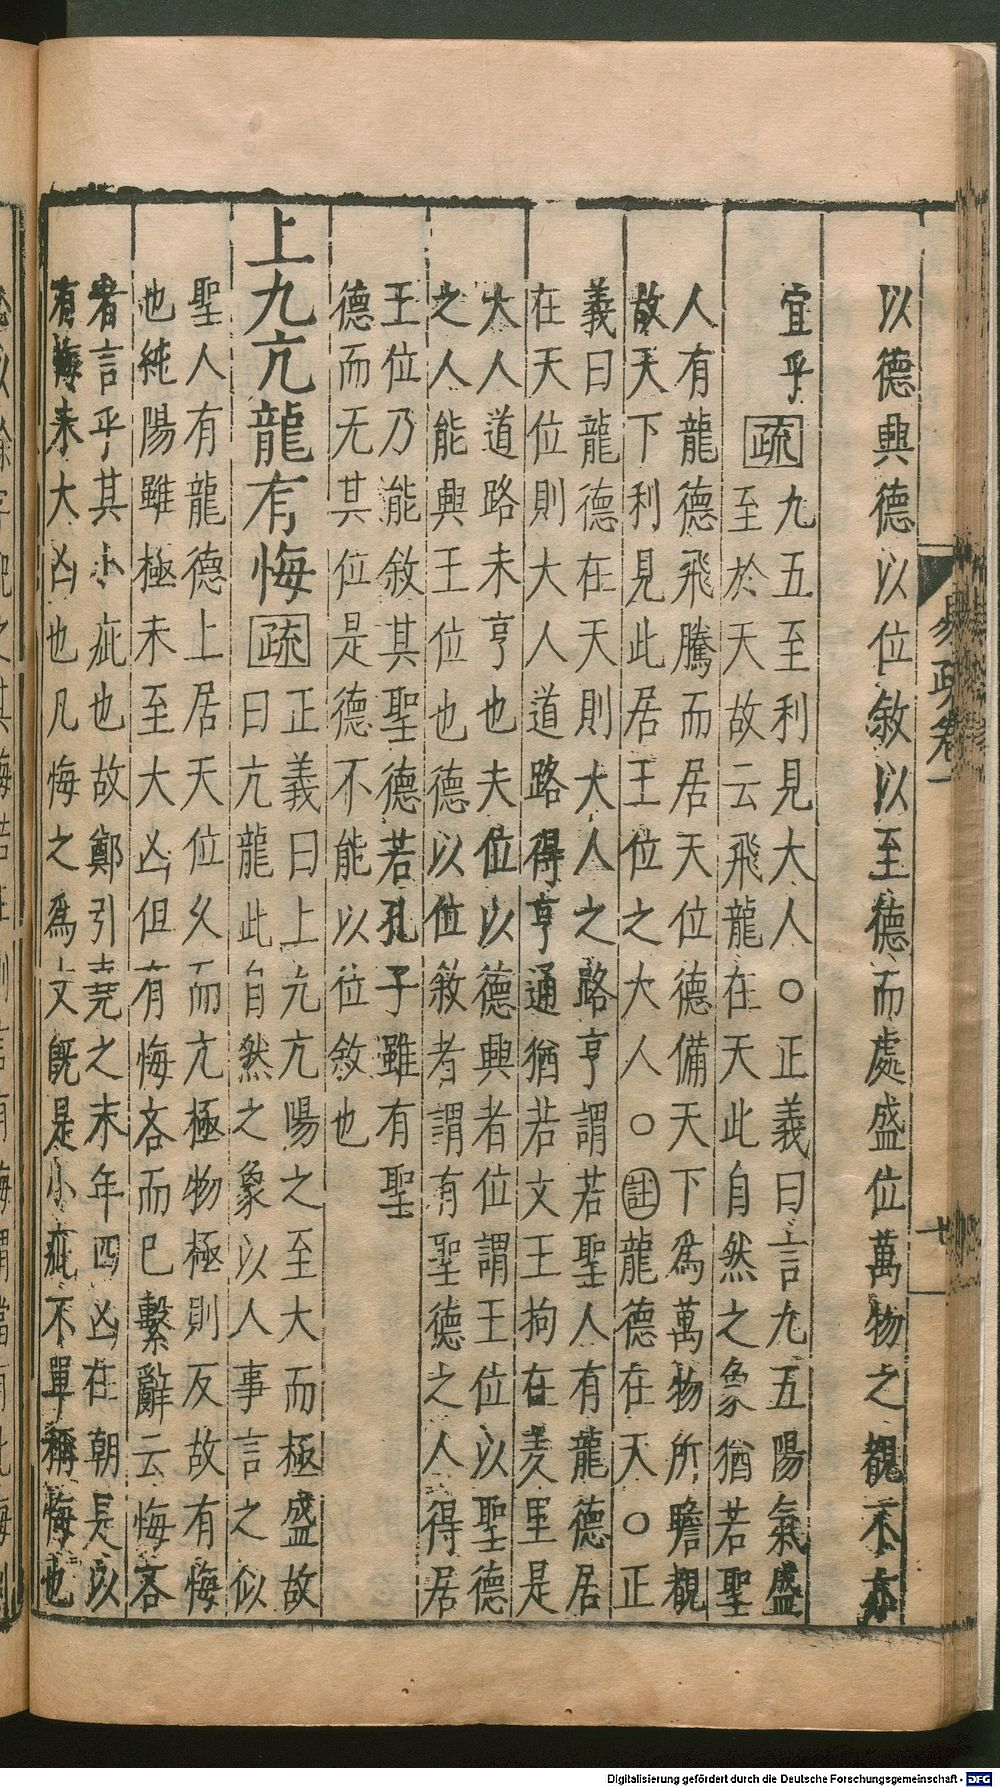 以德興德以位敘以至德而處盛位萬物之覩不亦
宜乎疏九五至利見大人○正義曰言九五陽氣盛
至於天故云飛龍在天此自然之象猶若聖
人有龍德飛騰而居天位德備天下爲萬物所瞻覩
故天下利見此居王位之大人○註龍德在天○正
義曰龍德在天則大人之路亨謂若聖人有龍德居
在天位則大人道路得亨通猶若文王拘在羑里是
大人道路未亨也夫位以德興者位謂王位以聖德
之人能興王位也德以位敘者謂有聖德之人得居
王位乃能敘其聖德若孔子雖有聖
德而无其位是德不能以位敘也
上九亢龍有悔疏正義曰上亢亢陽之至大而極盛故
曰亢龍此自然之象以人事言之似
聖人有龍德上居天位久而亢極物極則反故有悔
也純陽雖極未至大凶但有悔吝而已繫辭云悔吝
者言乎其小疵也故鄭引堯之末年四凶在朝長以
有悔未大凶也凡悔之爲文既是小疵不單稱悔也
Digitalisierung gefördert durch die Deutsche Forschungsgemeinschaft - DFG